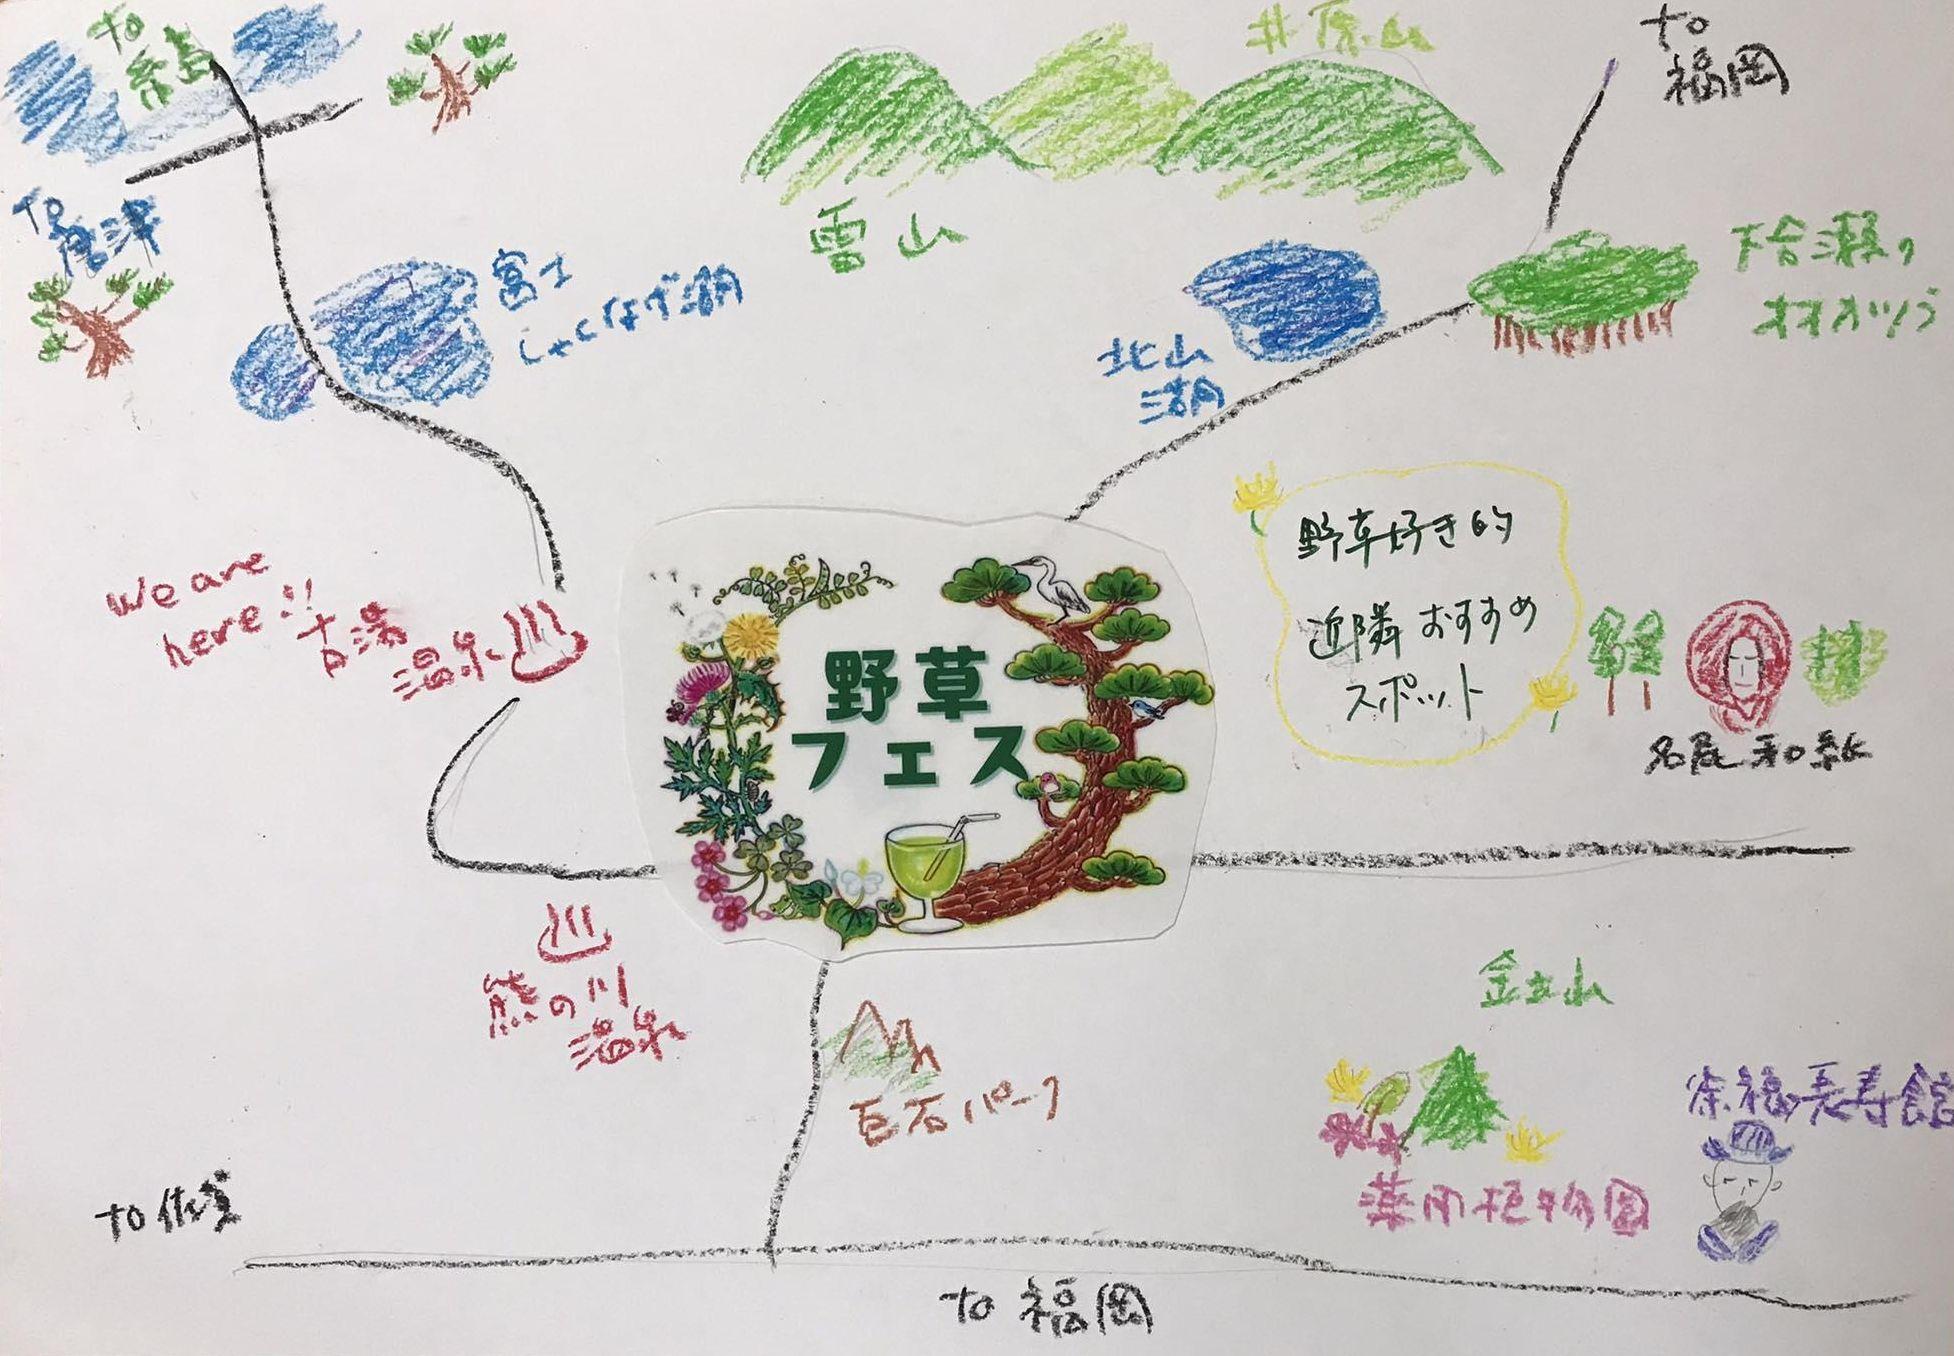 to
糸島
井原山
to
福岡
to
唐津
雷山
富士
しゃくなげ湖
北山
湖
下合瀬の
オオカツラ
We are
here!!
古湯
温泉
野草
フェス
野草好き的
近隣おすすめ
スポット
名尾和紙
熊の川
温泉
巨石パーク
金立山
徐福長寿館
薬用植物園
to 佐賀
to 福岡